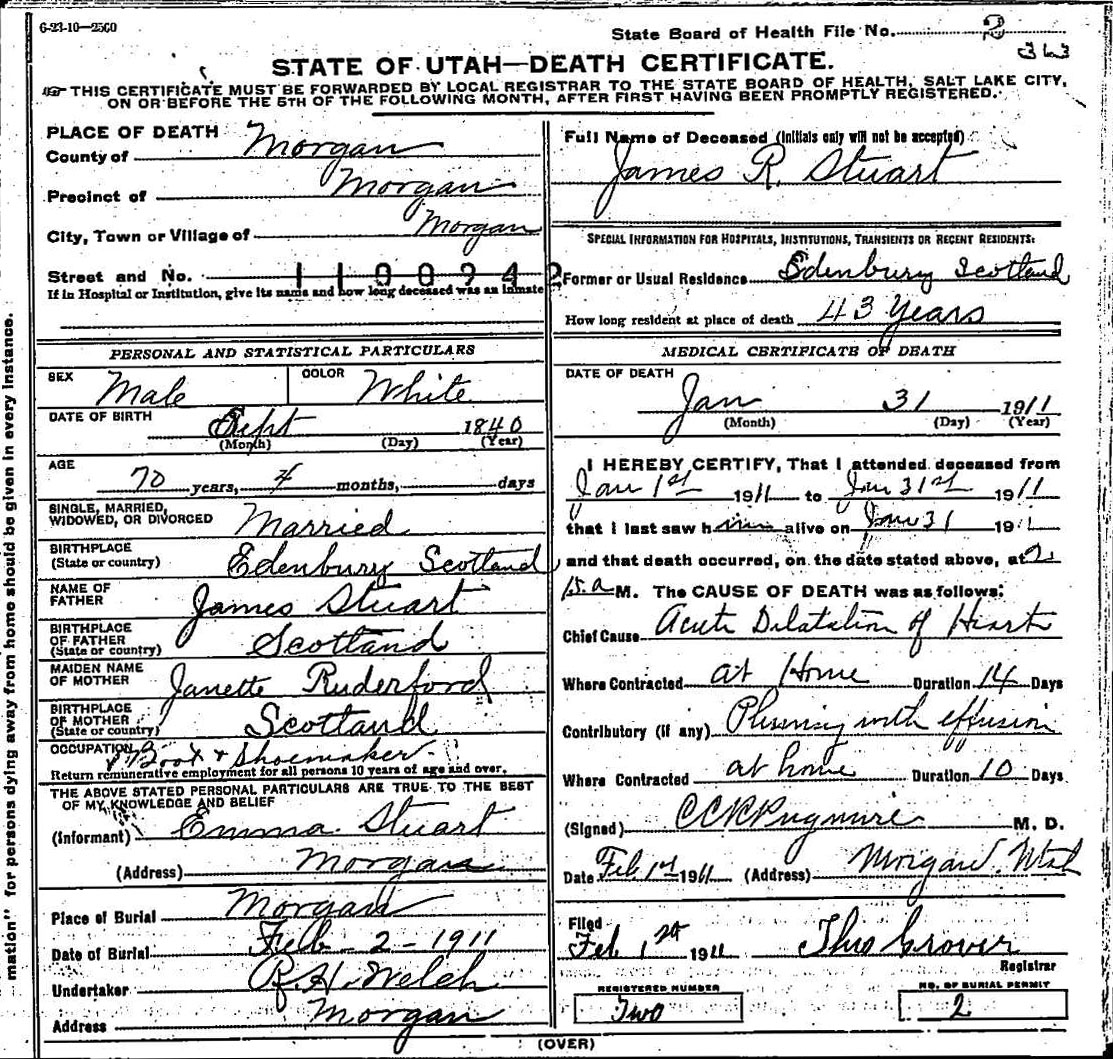 6-23-10-2500
State Board of Health File No. 2
363
STATE OF UTAH—DEATH CERTIFICATE.
THIS CERTIFICATE MUST BE FORWARDED BY LOCAL REGISTRAR TO THE STATE BOARD OF HEALTH, SALT LAKE CITY,
ON OR BEFORE THE 5TH OF THE FOLLOWING MONTH, AFTER FIRST HAVING BEEN PROMPTLY REGISTERED.
PLACE OF DEATH
County of Morgan
Precinct of Morgan
City, Town or Village of Morgan
Street and No.
1100942
If in Hospital or Institution, give its name and how long deceased was an inmate
Full Name of Deceased (Initials only will not be accepted)
James R. Stuart
SPECIAL INFORMATION FOR HOSPITALS, INSTITUTIONS, TRANSIENTS OR RECENT RESIDENTS:
Former or Usual Residence Edenbury Scotland
How long resident at place of death 43 Years
PERSONAL AND STATISTICAL PARTICULARS
SEX Male COLOR White
DATE OF BIRTH Sept 1840
(Month) (Day) (Year)
AGE
70 years, 4 months, days
SINGLE, MARRIED,
WIDOWED, OR DIVORCED Married
BIRTHPLACE
(State or country) Edenbury Scotland
NAME OF
FATHER James Stuart
BIRTHPLACE
OF FATHER
(State or country) Scotland
MAIDEN NAME
OF MOTHER Janette Ruderford
BIRTHPLACE
OF MOTHER
(State or country) Scotland
OCCUPATION Boot & Shoemaker
Return remunerative employment for all persons 10 years of age and over.
THE ABOVE STATED PERSONAL PARTICULARS ARE TRUE TO THE BEST
OF MY KNOWLEDGE AND BELIEF
(Informant) Emma Stuart
(Address) Morgan
Place of Burial Morgan
Date of Burial Feb - 2 - 1911
Undertaker R. H. Welch
Address Morgan
MEDICAL CERTIFICATE OF DEATH
DATE OF DEATH
Jan 31 1911
(Month) (Day) (Year)
I HEREBY CERTIFY, That I attended deceased from
Jan 1st 1911 to Jan 31st 1911
that I last saw him alive on Jan 31 1911
and that death occurred, on the date stated above, at 2
15 a M. The CAUSE OF DEATH was as follows:
Chief Cause Acute Dilatation of Heart
Where Contracted at Home Duration 14 Days
Contributory (if any) Pluerisy with effusion
Where Contracted at home Duration 10 Days
(Signed) M. D.
Date Feb 1st 1911 (Address) Morgan Utah
Filed
Feb 1st 1911 Thos Grover
Registrar
REGISTERED NUMBER
Two
NO. OF BURIAL PERMIT
2
(OVER)
mation" for persons dying away from home should be given in every instance.